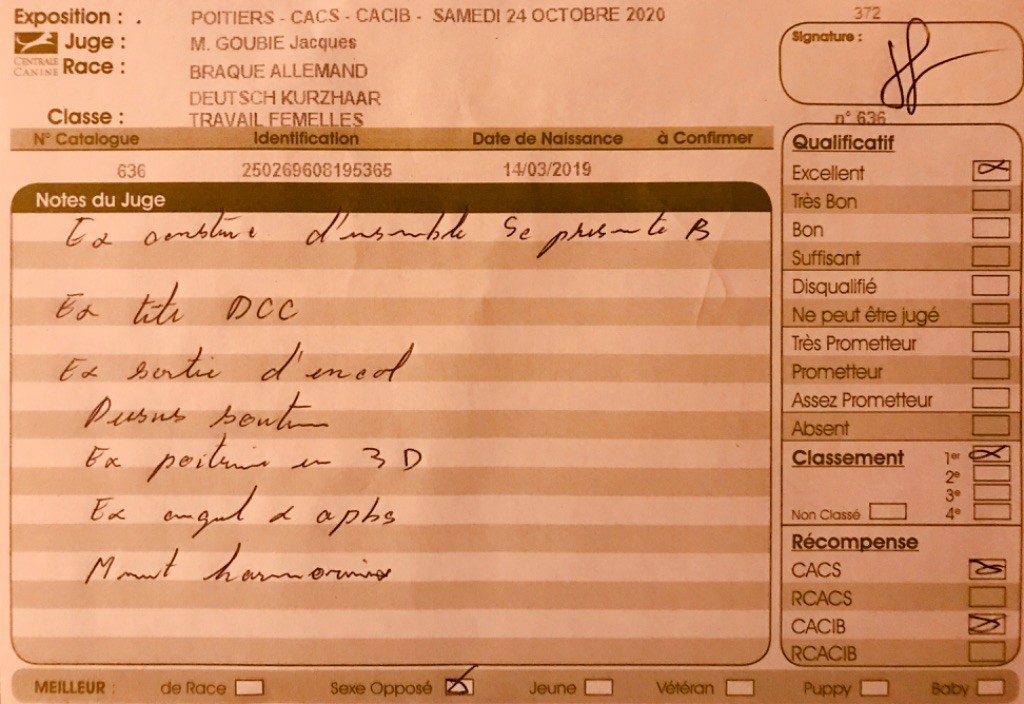 Exposition : . POITIERS - CACS - CACIB - SAMEDI 24 OCTOBRE 2020 372
Juge : M. GOUBIE Jacques
CENTRALE CANINE
Race : BRAQUE ALLEMAND
DEUTSCH KURZHAAR
Classe : TRAVAIL FEMELLES
Signature :
n° 636
N° Catalogue Identification Date de Naissance à Confirmer
636 250269608195365 14/03/2019
Notes du Juge
Ex d'ensemble Se présente B
Ex tête DCC
Ex sortie d'encol
Dessus
Ex poitrine en 3 D
Ex angul & apbs
harmonieux
Qualificatif
Excellent
Très Bon
Bon
Suffisant
Disqualifié
Ne peut être jugé
Très Prometteur
Prometteur
Assez Prometteur
Absent
Classement 1er
2e
3e
Non Classé 4e
Récompense
CACS
RCACS
CACIB
RCACIB
MEILLEUR : de Race Sexe Opposé Jeune Vétéran Puppy Baby